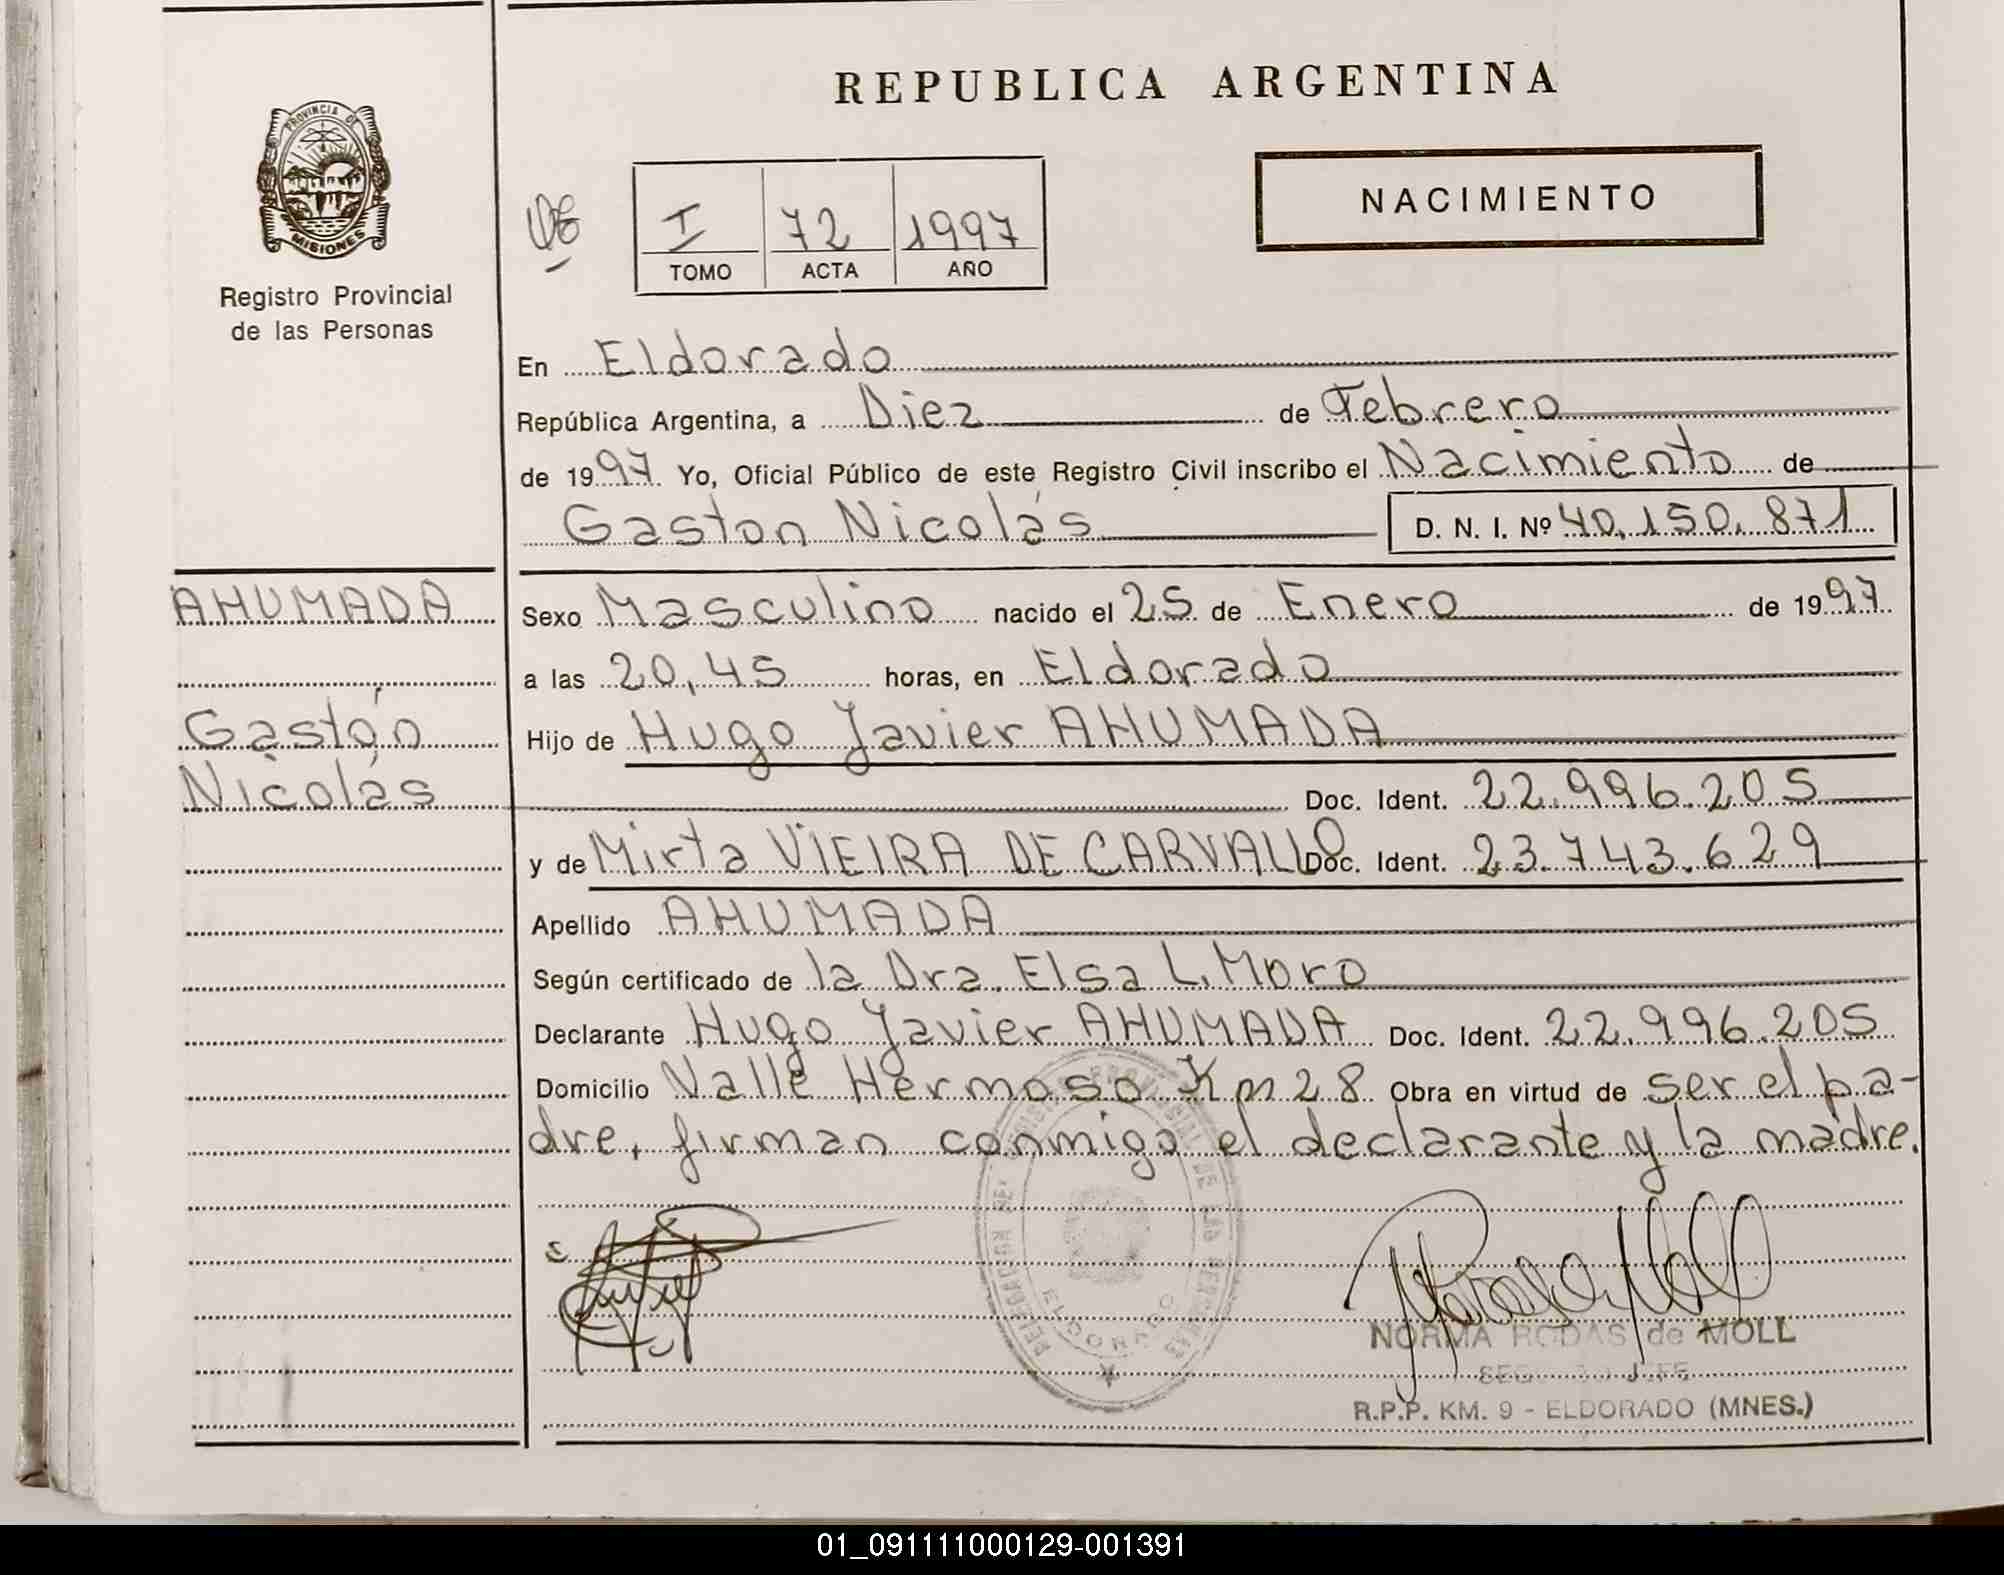 REPUBLICA ARGENTINA
PROVINCIA DE
MISIONES
Registro Provincial
de las Personas
I 72 1997
TOMO ACTA AÑO
NACIMIENTO
En Eldorado
República Argentina, a Diez de Febrero
de 1997 Yo, Oficial Público de este Registro Civil inscribo el Nacimiento de
Gaston Nicolás D. N. I. Nº 40.150.871
AHUMADA
Gastón
Nicolás
Sexo Masculino nacido el 25 de Enero de 1997
a las 20,45 horas, en Eldorado
Hijo de Hugo Javier AHUMADA
Doc. Ident. 22.996.205
y de Mirta VIEIRA DE CARVALLO Doc. Ident. 23.743.629
Apellido AHUMADA
Según certificado de la Dra. Elsa L. Moro
Declarante Hugo Javier AHUMADA Doc. Ident. 22.996.205
Domicilio Valle Hermoso Km 28 Obra en virtud de ser el pa-
dre, firman conmigo el declarante y la madre.
ELDORADO
NORMA RODAS de MOLL
JEFE
R.P.P. KM. 9 - ELDORADO (MNES.)
01_091111000129-001391